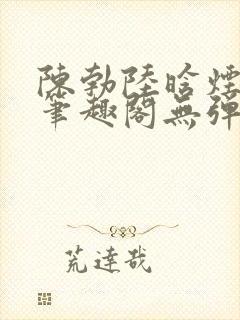 陳勃陸晗煙
筆趣閣無彈
荒達哉